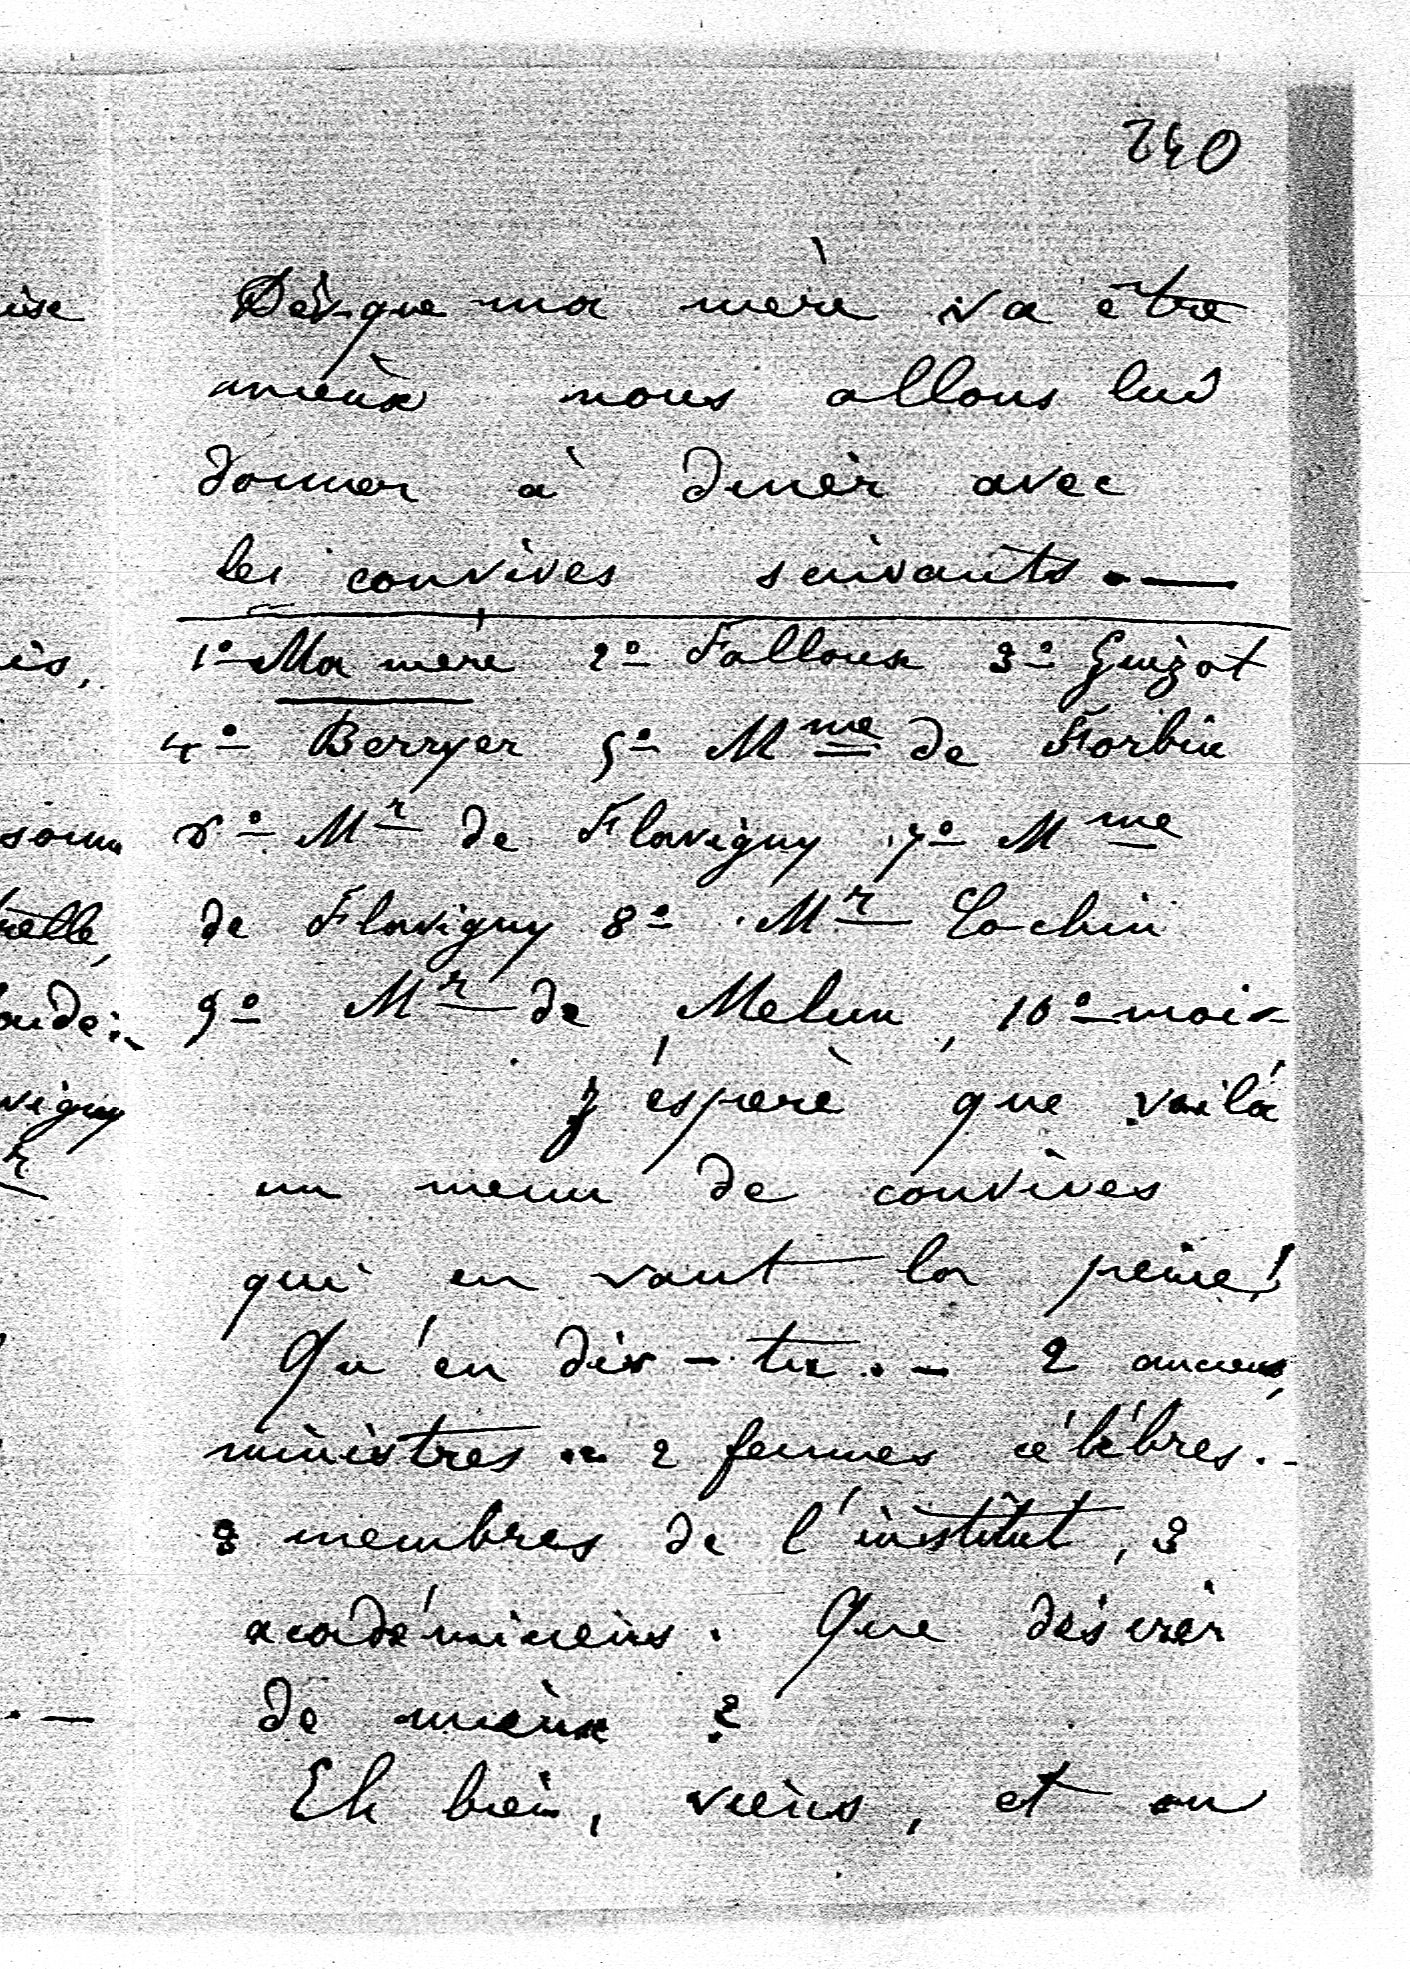 240
Dès que ma mère va être
mieux nous allons lui
donner à diner avec
les convives suivants. —
1º Ma mère 2º Falloux 3º Guizot
4º Berryer 5º Mme de Forbin
6º Mr de Flavigny 7º Mme
de Flavigny 8º Mr Cochin
9º Mr de Melun, 10º moi -
J'espère que voilà
un menu de convives
qui en vaut la peine!
Qu'en dis-tu. — 2 anciens
ministres .. 2 femmes célèbres. -
3 membres de l'institut, 3
académiciens. Que désirer
de mieux ?
Eh bien, viens, et on